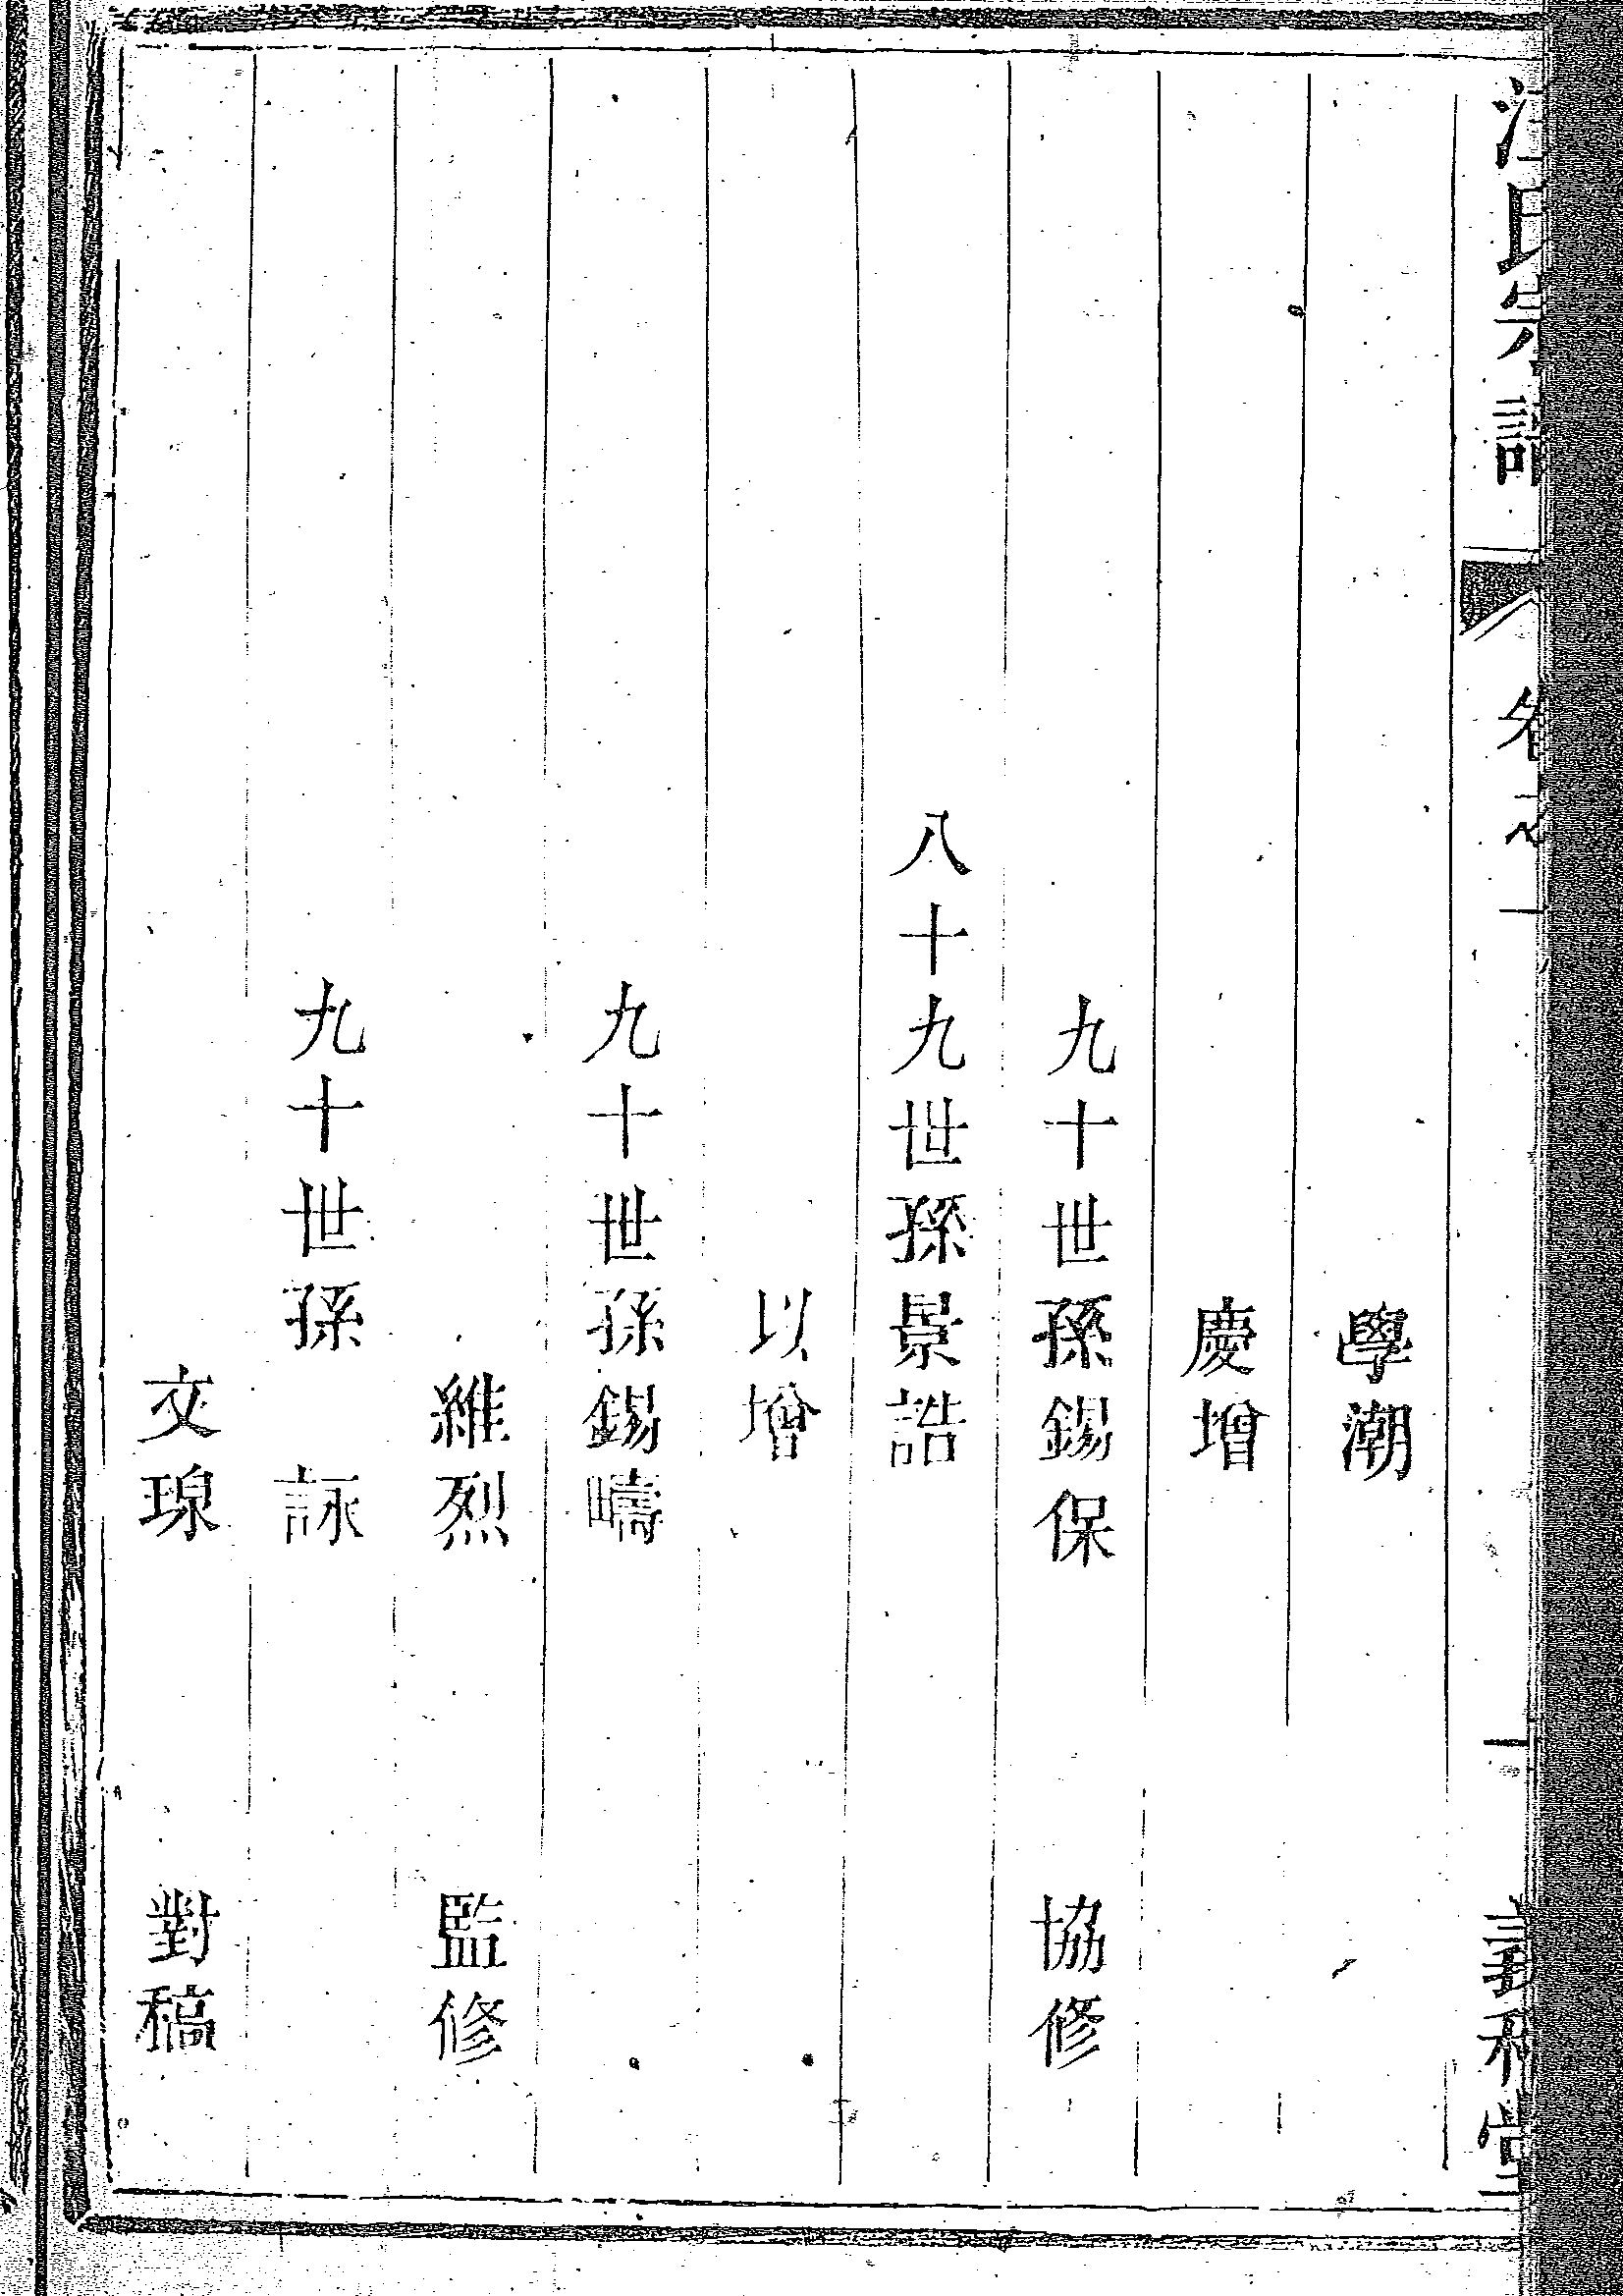 氏宗譜 卷之一 一 敦和堂
學潮
慶增
九十世孫錫保 協修
八十九世孫景誥
以增
九十世孫錫疇
維烈 監修
九十世孫 詠
文瑔 對稿